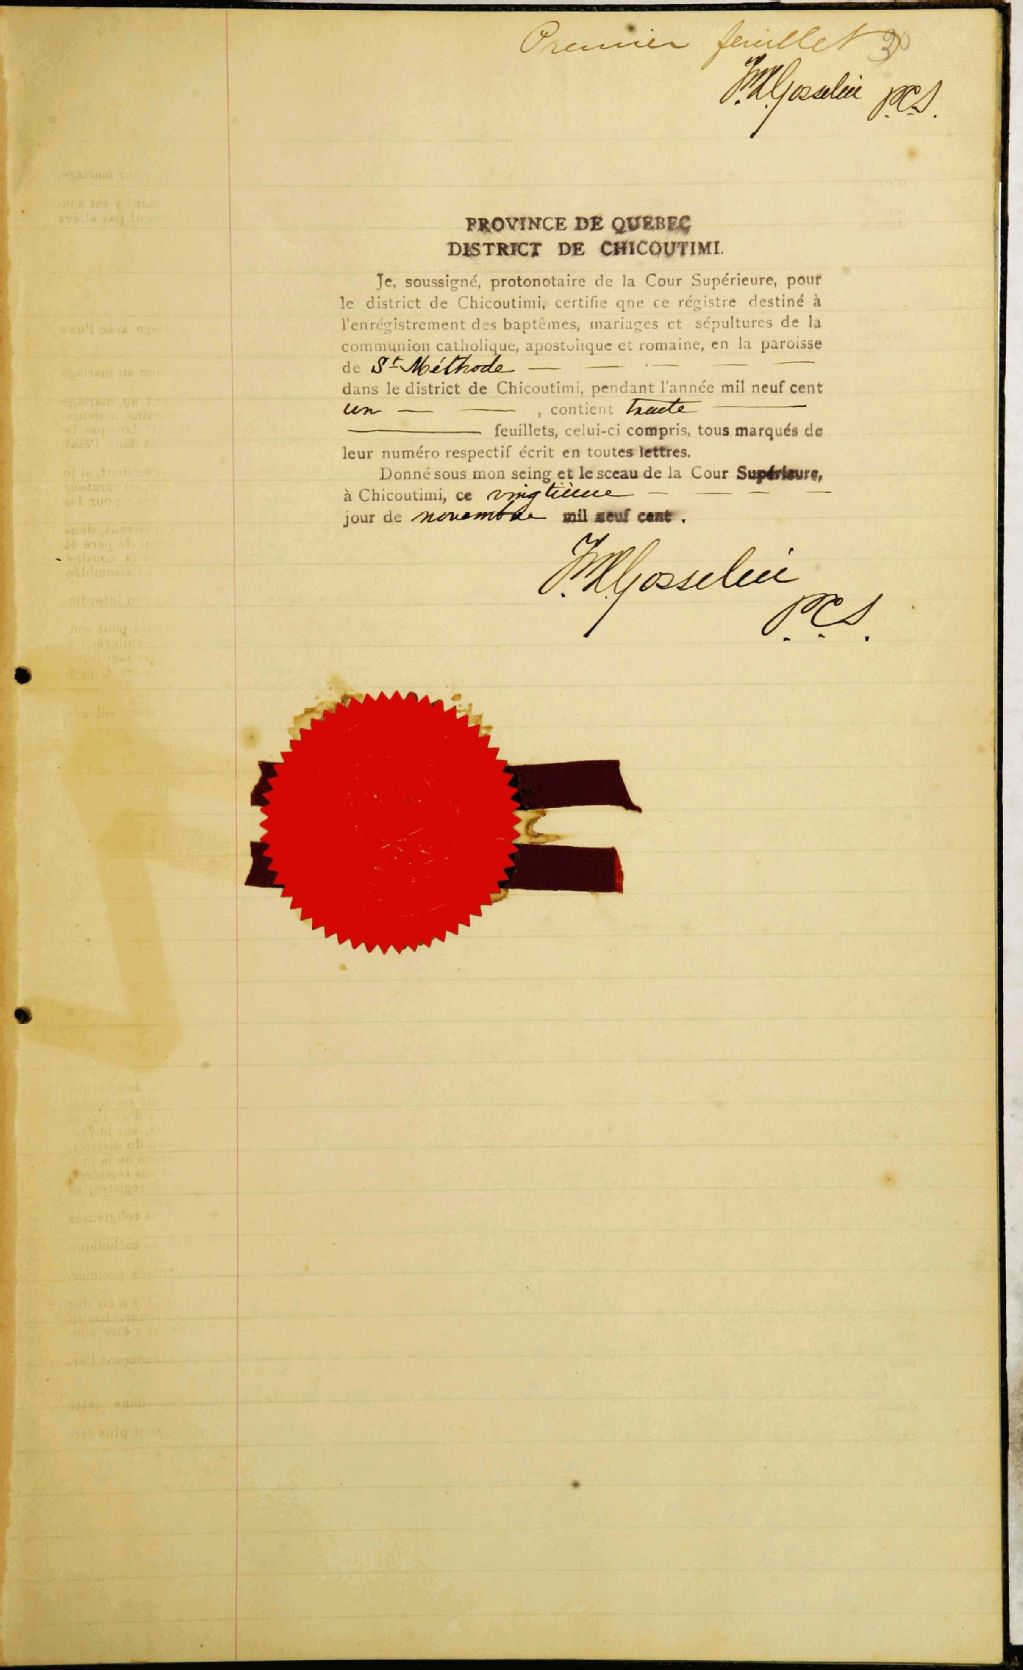 Premier feuillet 30
F.H. Gosselin P.C.S.
PROVINCE DE QUEBEC
DISTRICT DE CHICOUTIMI.
Je, soussigné, protonotaire de la Cour Supérieure, pour
le district de Chicoutimi, certifie qne ce régistre destiné à
l'enrégistrement des baptêmes, mariages et sépultures de la
communion catholique, apostolique et romaine, en la paroisse
de St Méthode — — — — —
dans le district de Chicoutimi, pendant l'année mil neuf cent
un — — , contient trente ——
—— feuillets, celui-ci compris, tous marqués de
leur numéro respectif écrit en toutes lettres.
Donné sous mon seing et le sceau de la Cour Supérieure,
à Chicoutimi, ce vingtième — — — —
jour de novembre mil neuf cent .
F.H. Gosselin
P.C.S.